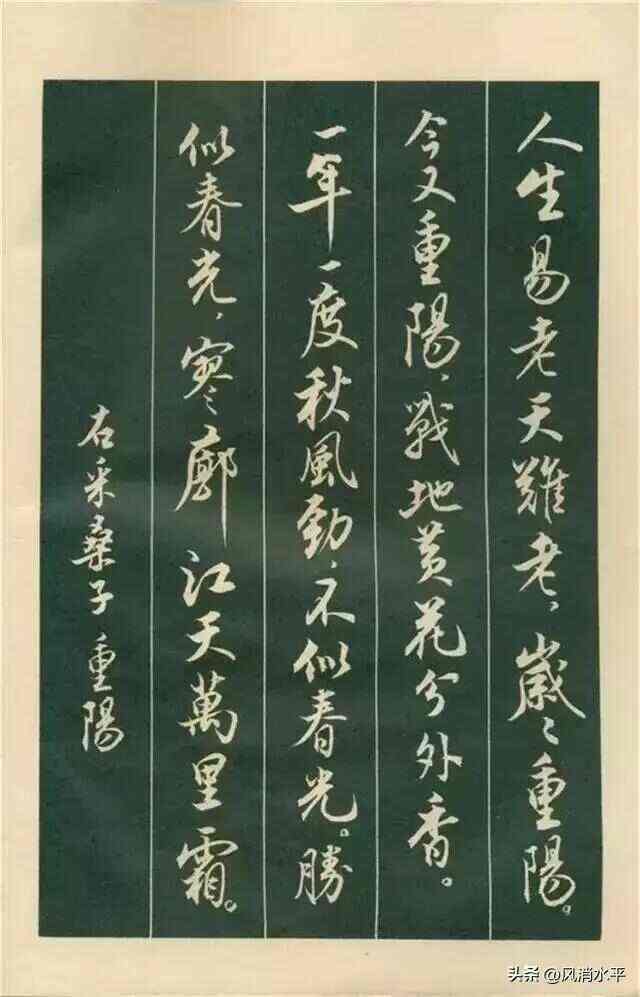 人生易老天難老，歲〻重陽。
今又重陽，戰地黃花分外香。
一年一度秋風勁，不似春光。勝
似春光，寥廓江天萬里霜。
右采桑子 重陽
头条 @风消水平